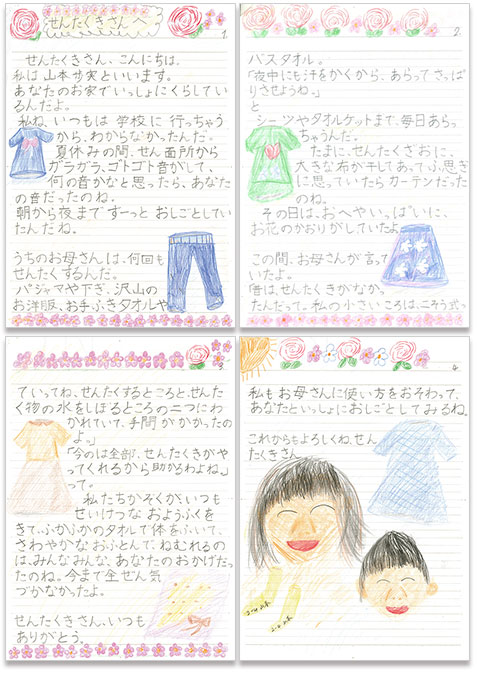 せんたくきさんへ
1.
せんたくきさん、こんにちは。
私は山本歩実といいます。
あなたのお家でいっしょにくらしてい
るんだよ。
私ね、いつもは学校に行っちゃう
から、わからなかったんだ。
夏休みの間、せん面所から
ガラガラ、ゴトゴト音がして、
何の音かなと思ったら、あなた
の音だったのね。
朝から夜までずーっとおしごとしてい
たんだね。
うちのお母さんは、何回も
せんたくするんだ。
パジャマや下ぎ、沢山の
お洋服、お手ふきタオルや
2.
バスタオル。
「夜中にも汗をかくから、あらってさっぱ
りさせようね。」
と
シーツやタオルケットまで、毎日あらっ
ちゃうんだ。
たまに、せんたくざおに、
大きな布が干してあってふ思ぎ
に思っていたらカーテンだった
のね。
その日は、おへやいっぱいに、
お花のかおりがしていたよ。
この間、お母さんが言って
いたよ。
「昔は、せんたくきがなか
たんだって。私の小さいころは、二そう式っ
3.
ていってね、せんたくするところと、せんた
く物の水をしぼるところの二つにわ
かれていて、手間がかかったの
よ。」
「今のは全部、せんたくきがや
ってくれるから助かるわよね。」
って。
私たちかぞくが、いつも
せいけつなおようふくを
きて、ふかふかのタオルで体をふいて、
さわやかなおふとんで、ねむれるの
は、みんなみんな、あなたのおかげだっ
たのね。今まで全ぜん気
づかなかったよ。
せんたくきさん、いつも
ありがとう。
4.
私もお母さんに使い方をおそわって、
あなたといっしょにおしごとしてみるね。
これからもよろしくね、せん
たくきさん。